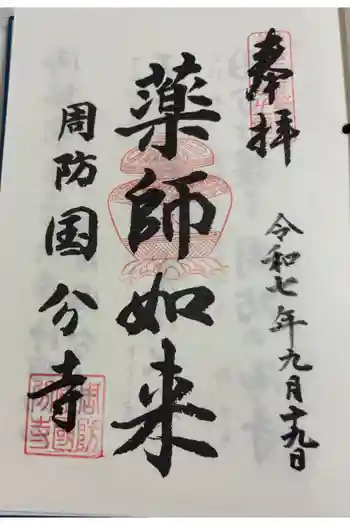 奉拝
令和七年九月十九日
薬師如来
周防国分寺
周防国分寺